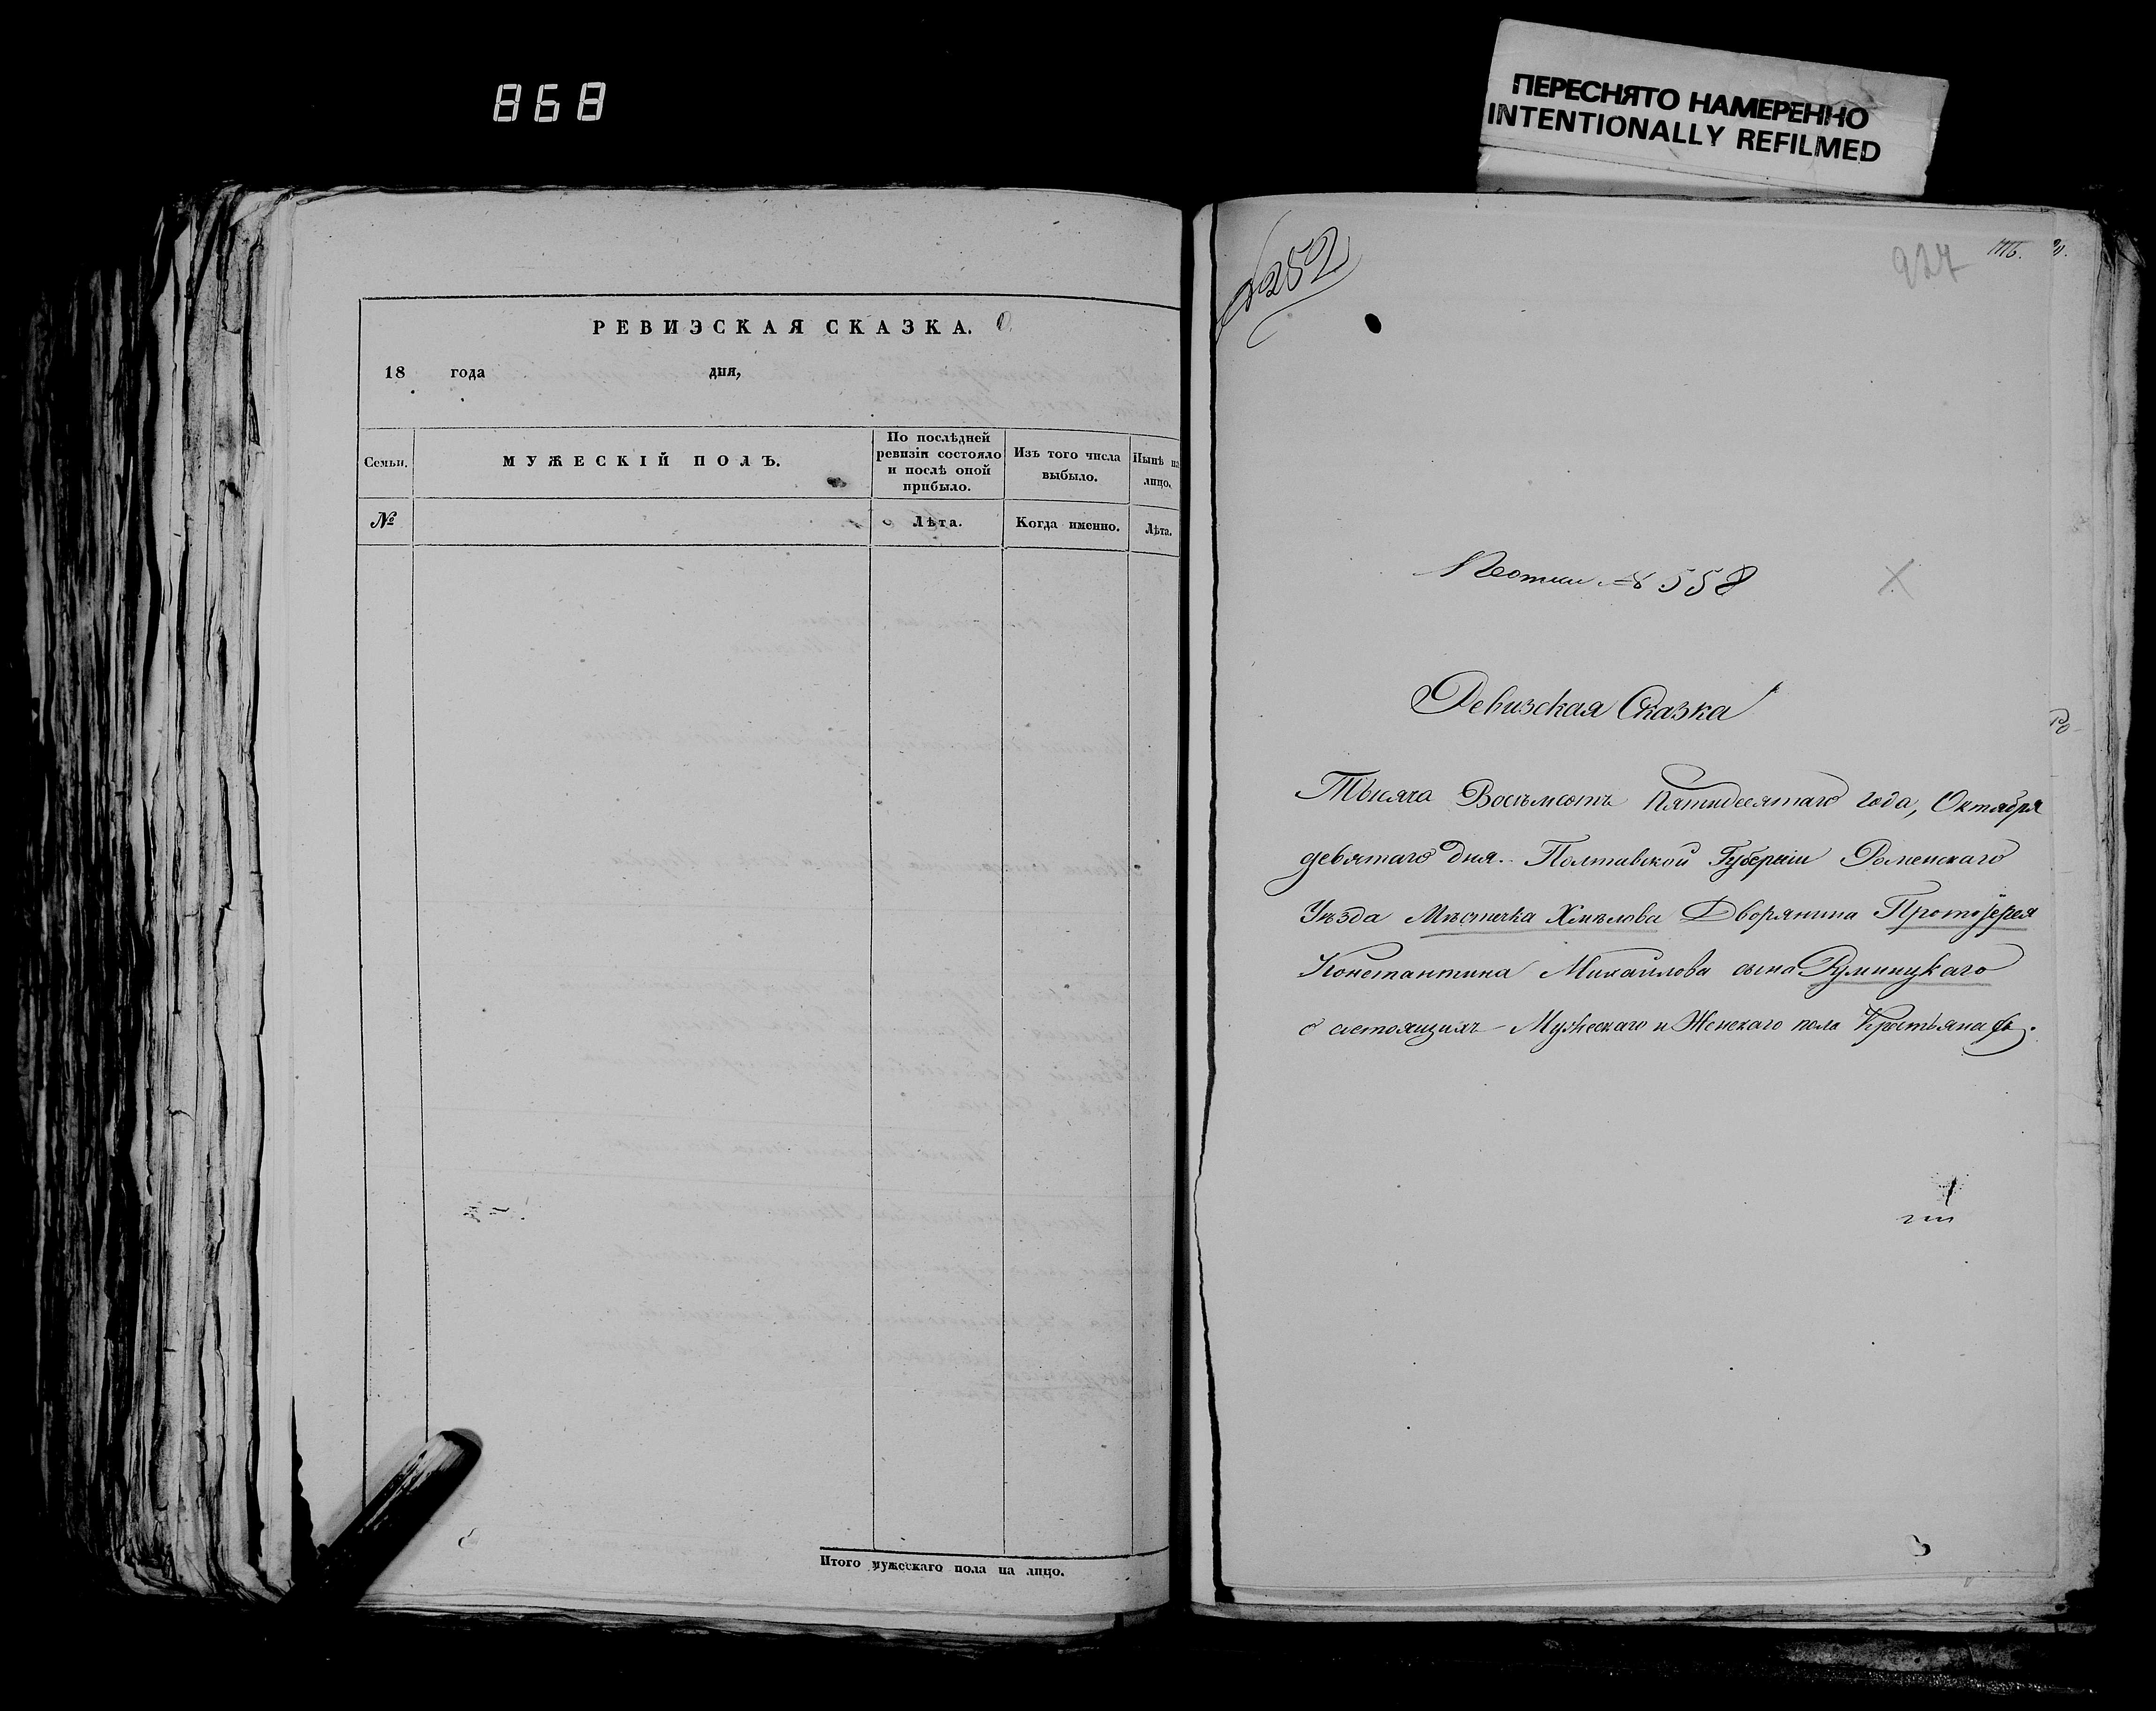 868
ПЕРЕСНЯТО НАМЕРЕННО
INTENTIONALLY REFILMED
РЕВИЗСКАЯ СКАЗКА.
18 года дня,
Семьи.
МУЖЕСКІЙ ПОЛЪ.
По послѣдней
ревизіи состояло
и послѣ оной
прибыло.
Изъ того числа
выбыло.
Нынѣ на
лицо.
№
Лѣта.
Когда именно.
Лѣта.
Итого мужескаго пола на лицо.
№252
927
№ 558
Ревизская Сказка
Тысяча Восѣмсотъ Пятидесятаго года, Октября
девятаго дня. Полтавской Губерніи Роменскаго
Уѣзда Мѣстечка Хмѣлова Дворянина Протоіерея
Константина Михаилова сына
о состоящихъ Мужескаго и Женскаго пола